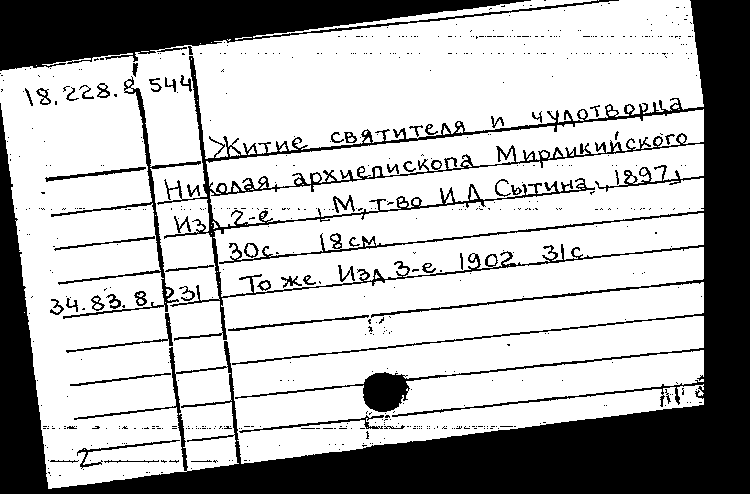 18.228.8.544
Житие святителя и чудотворца
Николая, архиепископа Мирликийского
Изд. 2-е [М., т-во И.Д Сытина, 1897]
30с. 18см.
34.83.8.231 То же. Изд 3-е. 1902. 31с.
2